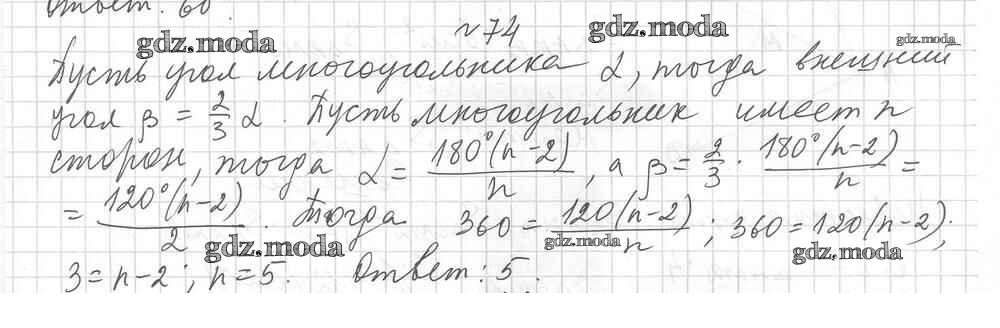 Ответ: 60°.
№74
Пусть угол многоугольника α, тогда внешний
угол β = 2/3 α. Пусть многоугольник имеет n
сторон, тогда α = 180°(n-2)/n, а β = 2/3 · 180°(n-2)/n =
= 120°(n-2)/2. Тогда 360 = 120(n-2)/n; 360 = 120(n-2);
3 = n-2; n = 5. Ответ: 5.
gdz.moda
gdz.moda
gdz.moda
gdz.moda
gdz.moda
gdz.moda